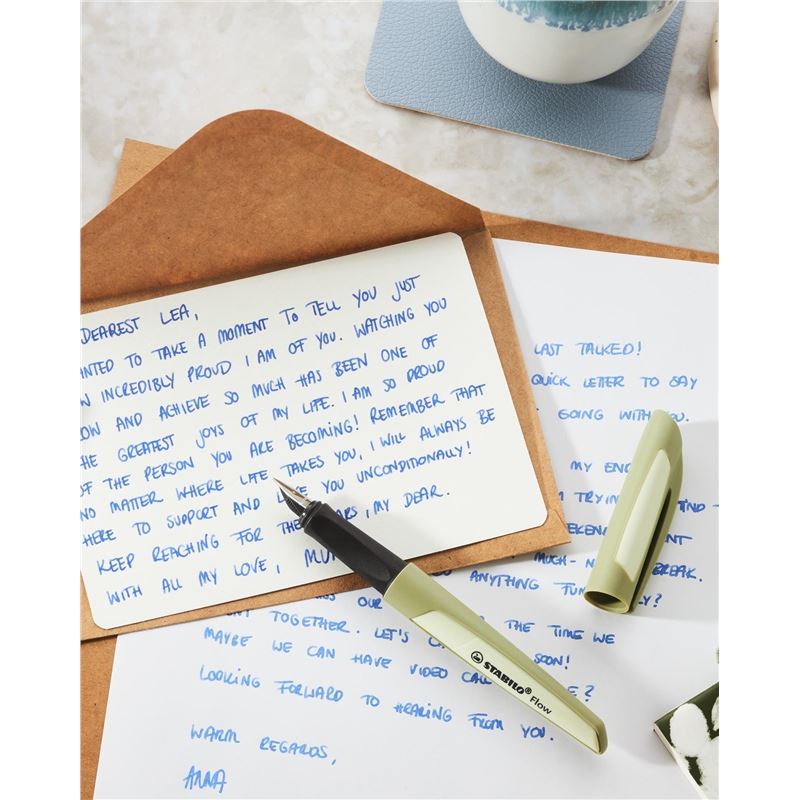 DEAREST LEA,
ANTED TO TAKE A MOMENT TO TELL YOU JUST
W INCREDIBLY PROUD I AM OF YOU. WATCHING YOU
OW AND ACHIEVE SO MUCH HAS BEEN ONE OF
HE GREATEST JOYS OF MY LIFE. I AM SO PROUD
OF THE PERSON YOU ARE BECOMING! REMEMBER THAT
NO MATTER WHERE LIFE TAKES YOU, I WILL ALWAYS BE
HERE TO SUPPORT AND YOU UNCONDITIONALLY!
KEEP REACHING FOR THE ARS, MY DEAR.
WITH ALL MY LOVE, MU
LAST TALKED!
QUICK LETTER TO SAY
GOING WITH YOU.
MY EN
TRYIN IND
EKEN NT
MUCH- N BREAK.
ANYTHING FUN LY?
OUR
NT TOGETHER. LET'S C THE TIME WE
MAYBE WE CAN HAVE VIDEO CAL SOON!
LOOKING FORWARD TO HEARING FROM YOU. E?
WARM REGARDS,
ANNA
STABILO® Flow